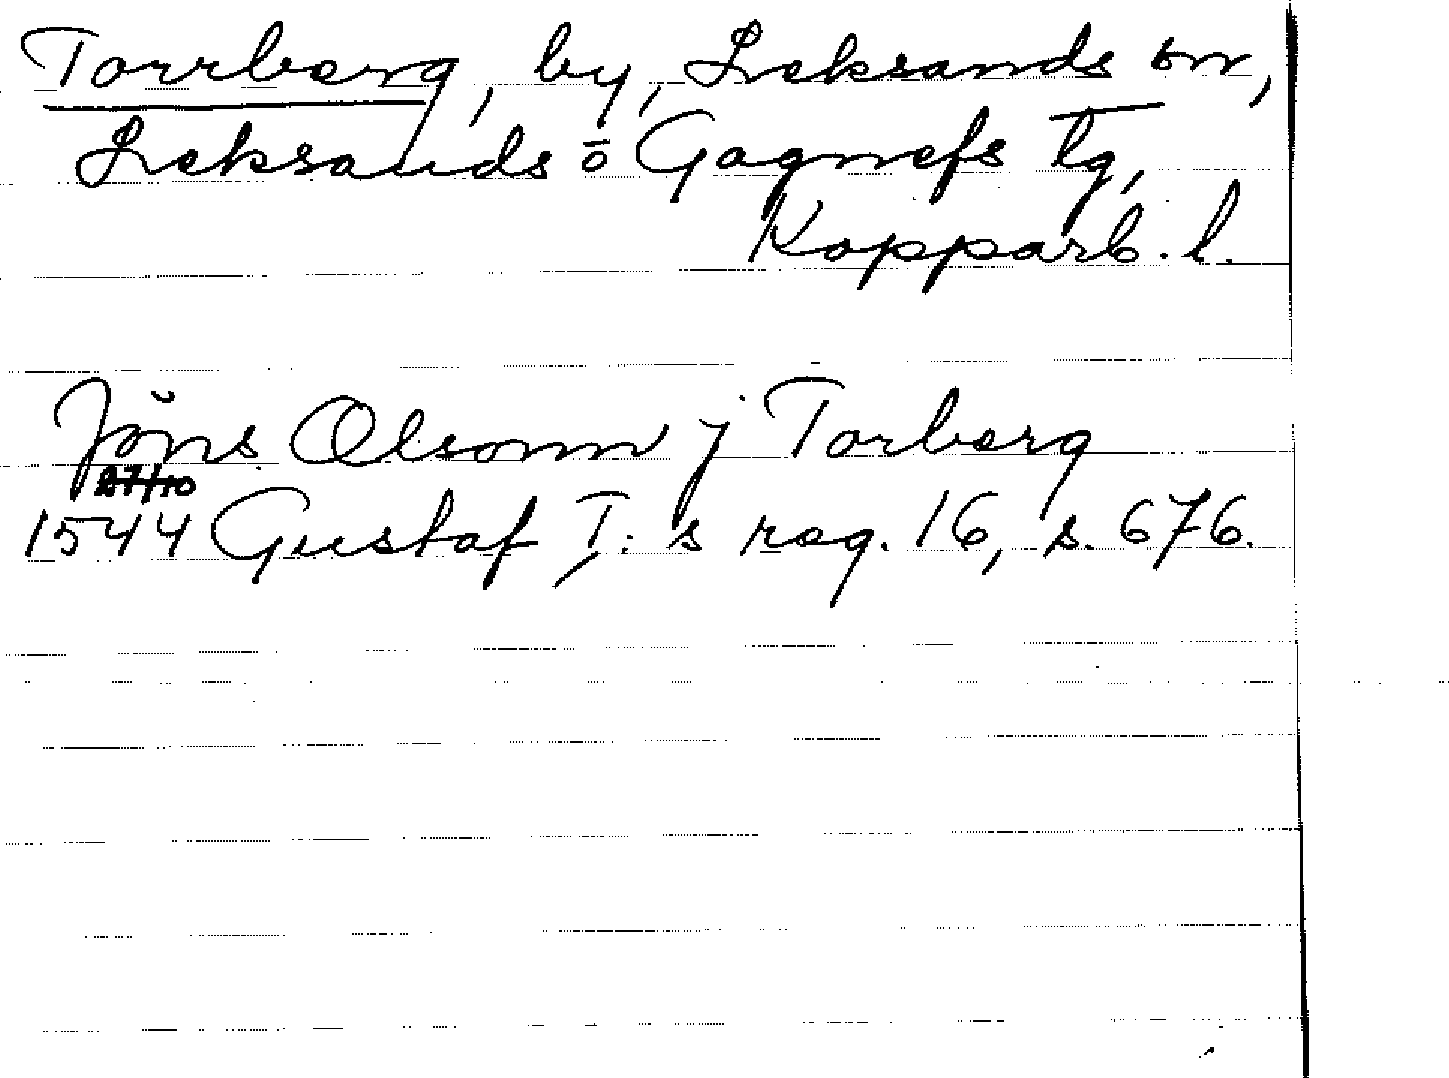 Torrberg, by, Leksands sn,
Leksands ō Gagnefs tg,
Kopparb. l.
Jöns Olsonn j Torberg
27/10
1544 Gustaf I: s reg. 16, s. 676.